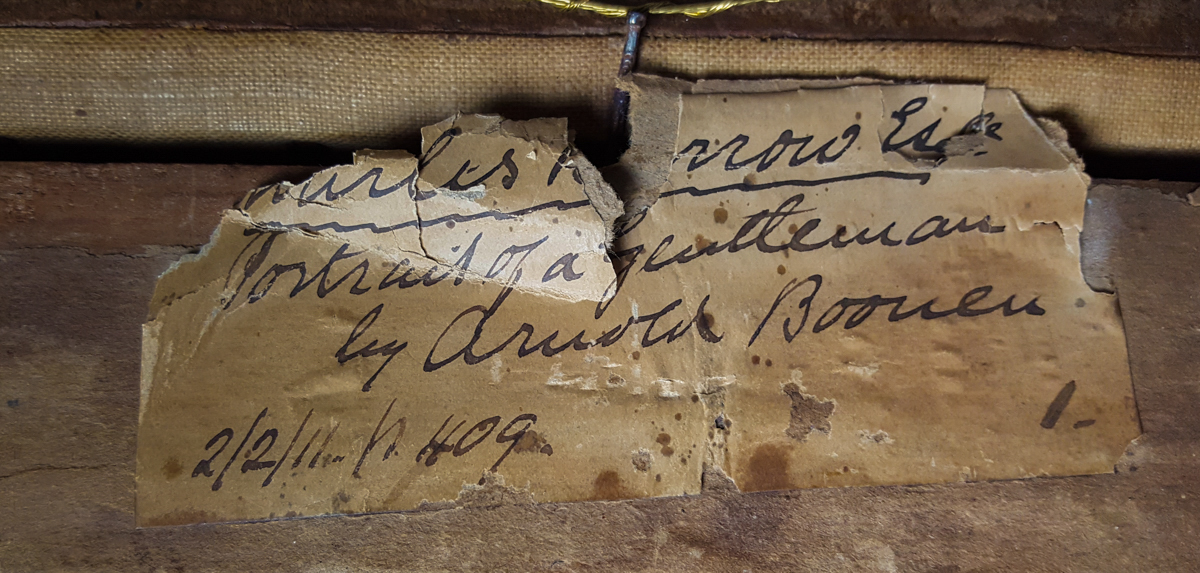 Charles rrow Esqr
Portrait of a gentleman
by Arnold Boonen
2/2/11. 409.
1-